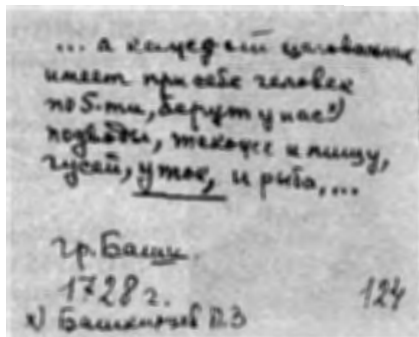 ... а каждой целовальник
имеет при себе человек
по 5-ти, берут у нас х)
подводы, також и пищу,
гусей, уток, и рыба,...
гр. Башк.
1728 г.
124
х) Башкирцев П.З